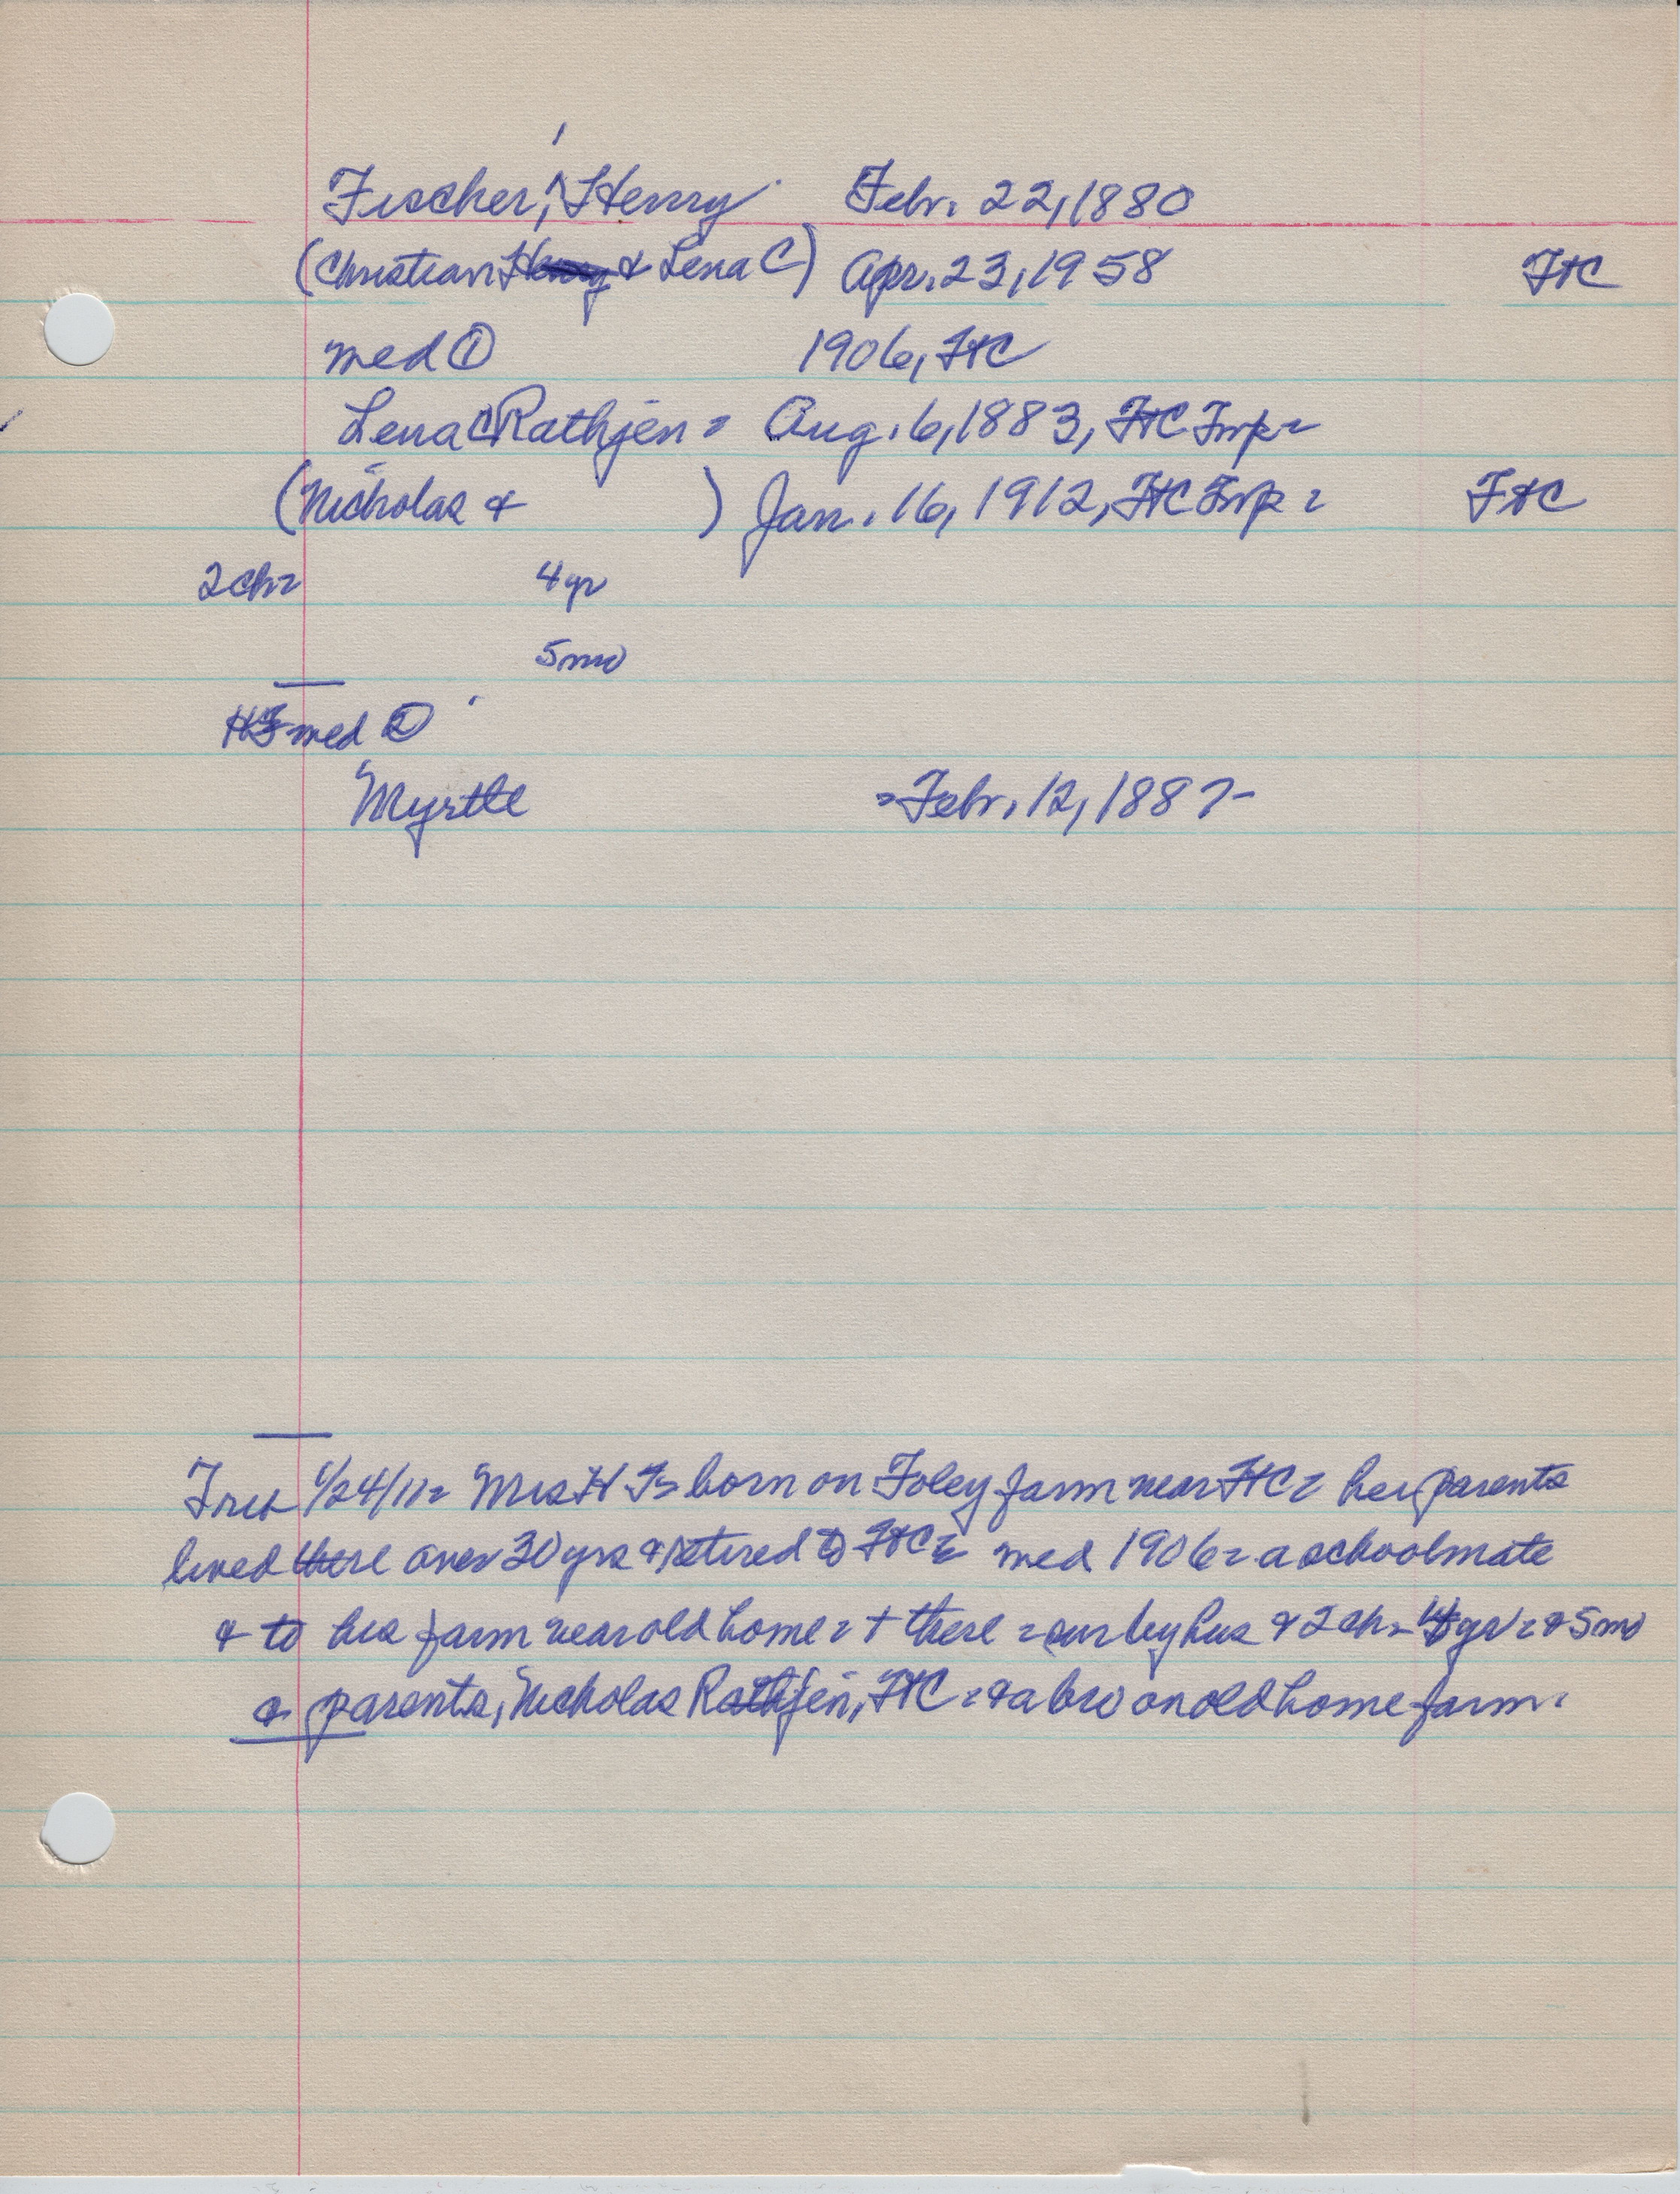 Fischer, Henry Febr. 22, 1880
(Christian H & Lena C) Apr. 23, 1958 FtC
med ① 1906, FtC
Lena C Rathjen = Aug. 6, 1883, FtC Twp =
(Nicholas & ) Jan. 16, 1912, FtC Twp = FtC
2 ch = 4 yr
5 mo
HF med ②
Myrtle = Febr. 12, 1887 -
1/24/11 = Mrs H F = born on Foley farm near FtC = her parents
lived there over 30 yrs & retired to FtC = med 1906 = a schoolmate
& to his farm near old home = + there = sur by hus & 2 ch = 4 yr = & 5 mo
& parents, Nicholas Rathjen, FtC = & a bro on old home farm.